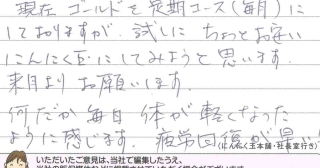 現在 ゴールドを定期コース(毎月)に
しておりますが、試しに ちょっとお安い
にんにく玉にしてみようと思います
来月より お願いします
何だか毎日 体が軽くなった
ように感じます 疲労回復が早い!
(にんにく玉本舗・社長室行き)
いただいたご意見は、当社で編集したうえ、